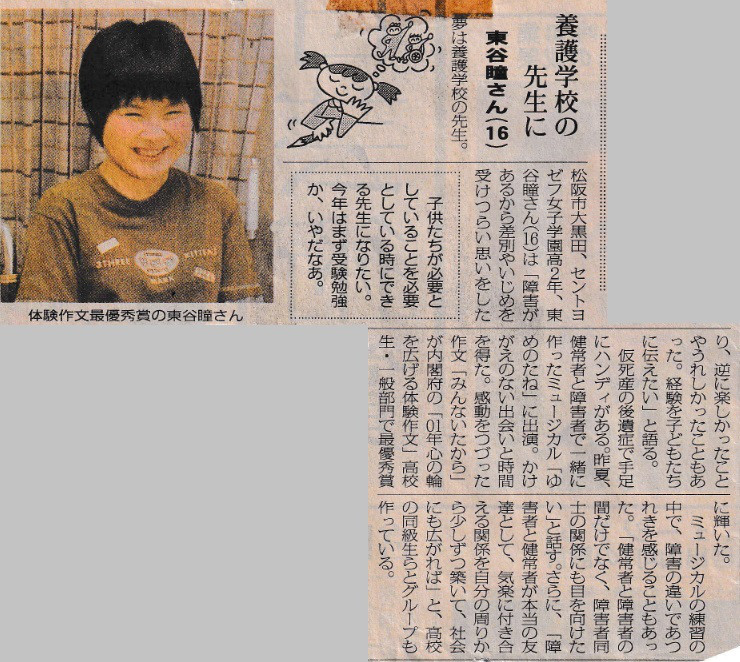 養護学校の
先生に
東谷瞳さん(16)
夢は養護学校の先生。
松阪市大黒田、セントヨ
ゼフ女子学園高2年、東
谷瞳さん(16)は「障害が
あるから差別やいじめを
受けつらい思いをした
子供たちが必要と
していることを必要
としている時にでき
る先生になりたい。
今年はまず受験勉強
か、いやだなあ。
体験作文最優秀賞の東谷瞳さん
THREE
KITTENS
り、逆に楽しかったこと
やうれしかったこともあ
った。経験を子どもたち
に伝えたい」と語る。
仮死産の後遺症で手足
にハンディがある。昨夏、
健常者と障害者で一緒に
作ったミュージカル「ゆ
めのたね」に出演。かけ
がえのない出会いと時間
を得た。感動をつづった
作文「みんないたから」
が内閣府の「01年心の輪
を広げる体験作文」高校
生・一般部門で最優秀賞
に輝いた。
ミュージカルの練習の
中で、障害の違いであつ
れきを感じることもあっ
た。「健常者と障害者の
間だけでなく、障害者同
士の関係にも目を向けた
い」と話す。さらに、「障
害者と健常者が本当の友
達として、気楽に付き合
える関係を自分の周りか
ら少しずつ築いて、社会
にも広がれば」と、高校
の同級生らとグループも
作っている。